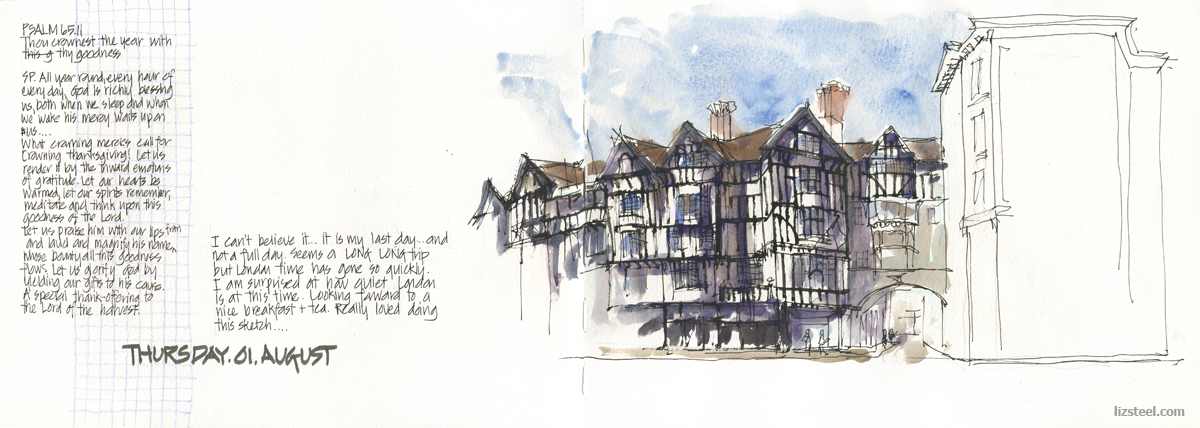 PSALM 65.11
Thou crownest the year with
this g thy goodness
SP. All year round, every hour of
every day, God is richly blessing
us, both when we sleep and what
we wake his mercy waits upon
us....
What crowning mercies call for
Crowning thanksgiving! Let us
render it by the inward emotions
of gratitude. Let our hearts be
warmed, let our spirits remember,
meditate and think upon this
goodness of the Lord.
Let us praise him with our lips
and laud and magnify his name, from
whose bounty all this goodness
flows. Let us glorify God by
yielding our gifts to his cause.
A special thank-offering to
the Lord of the harvest.
I can't believe it... it is my last day... and
not a full day. Seems a LONG LONG trip
but London time has gone so quickly.
I am surprised at how quiet London
is at this time. Looking forward to a
nice breakfast + tea. Really loved doing
this sketch....
THURSDAY. 01. AUGUST
lizsteel.com